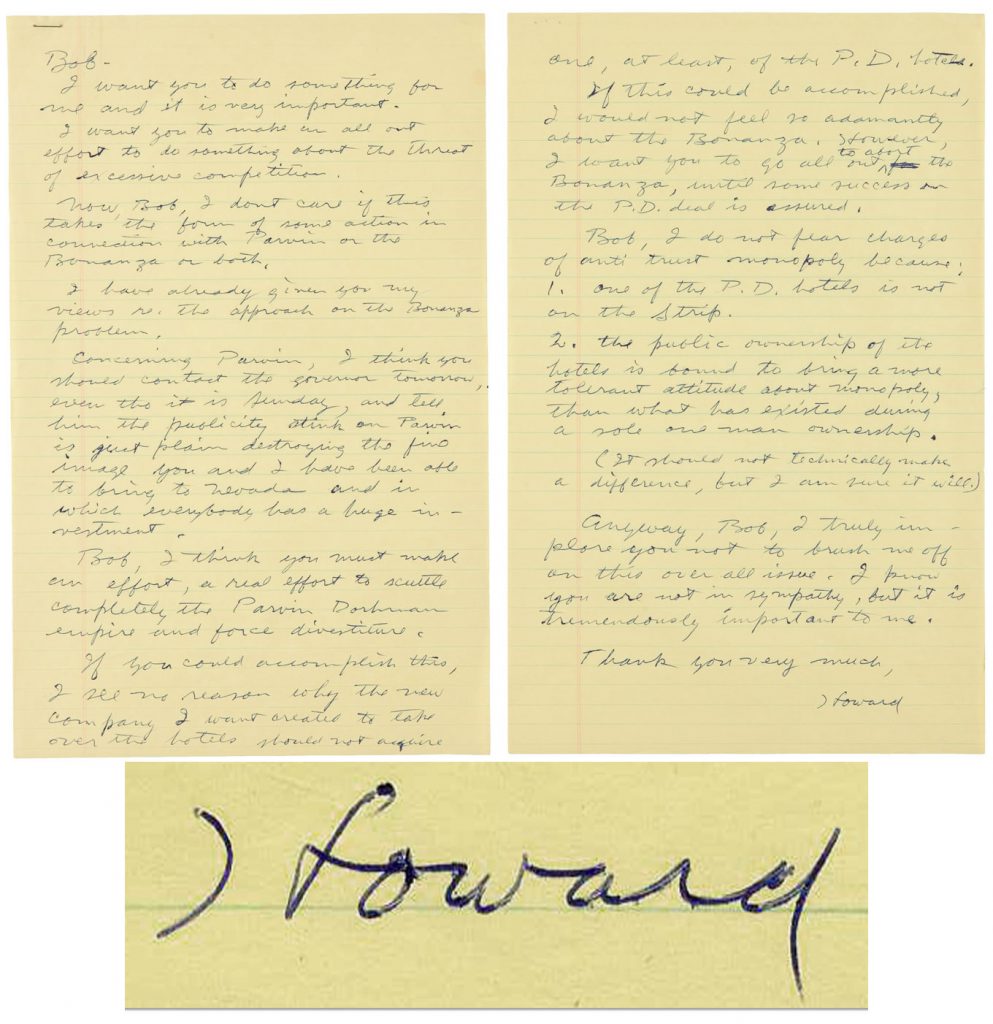 Bob-
I want you to do something for
me and it is very important.
I want you to make an all out
effort to do something about the threat
of excessive competition.
Now, Bob, I dont care if this
takes the form of some action in
connection with Parvin or the
Bonanza or both.
I have already given you my
views re. the approach on the Bonanza
problem.
Concerning Parvin, I think you
should contact the governor tomorrow,
even tho it is Sunday, and tell
him the publicity stink on Parvin
is just plain destroying the fine
image you and I have been able
to bring to Nevada and in
which everybody has a huge in-
vestment.
Bob, I think you must make
an effort, a real effort to scuttle
completely the Parvin Dorhman
empire and force divestiture.
If you could accomplish this,
I see no reason why the new
company I want created to take
over the hotels should not acquire
one, at least, of the P.D. hotels.
If this could be accomplished,
I would not feel so adamantly
about the Bonanza. However,
I want you to go all out to abort the
Bonanza, until some success on
the P.D. deal is assured.
Bob, I do not fear charges
of anti trust monopoly because;
1. one of the P.D. hotels is not
on the Strip.
2. the public ownership of the
hotels is bound to bring a more
tolerant attitude about monopoly,
than what has existed during
a sole one man ownership.
(It should not technically make
a difference, but I am sure it will.)
Anyway, Bob, I truly im-
plore you not to brush me off
on this over all issue. I know
you are not in sympathy, but it is
tremendously important to me.
Thank you very much,
Howard
Howard